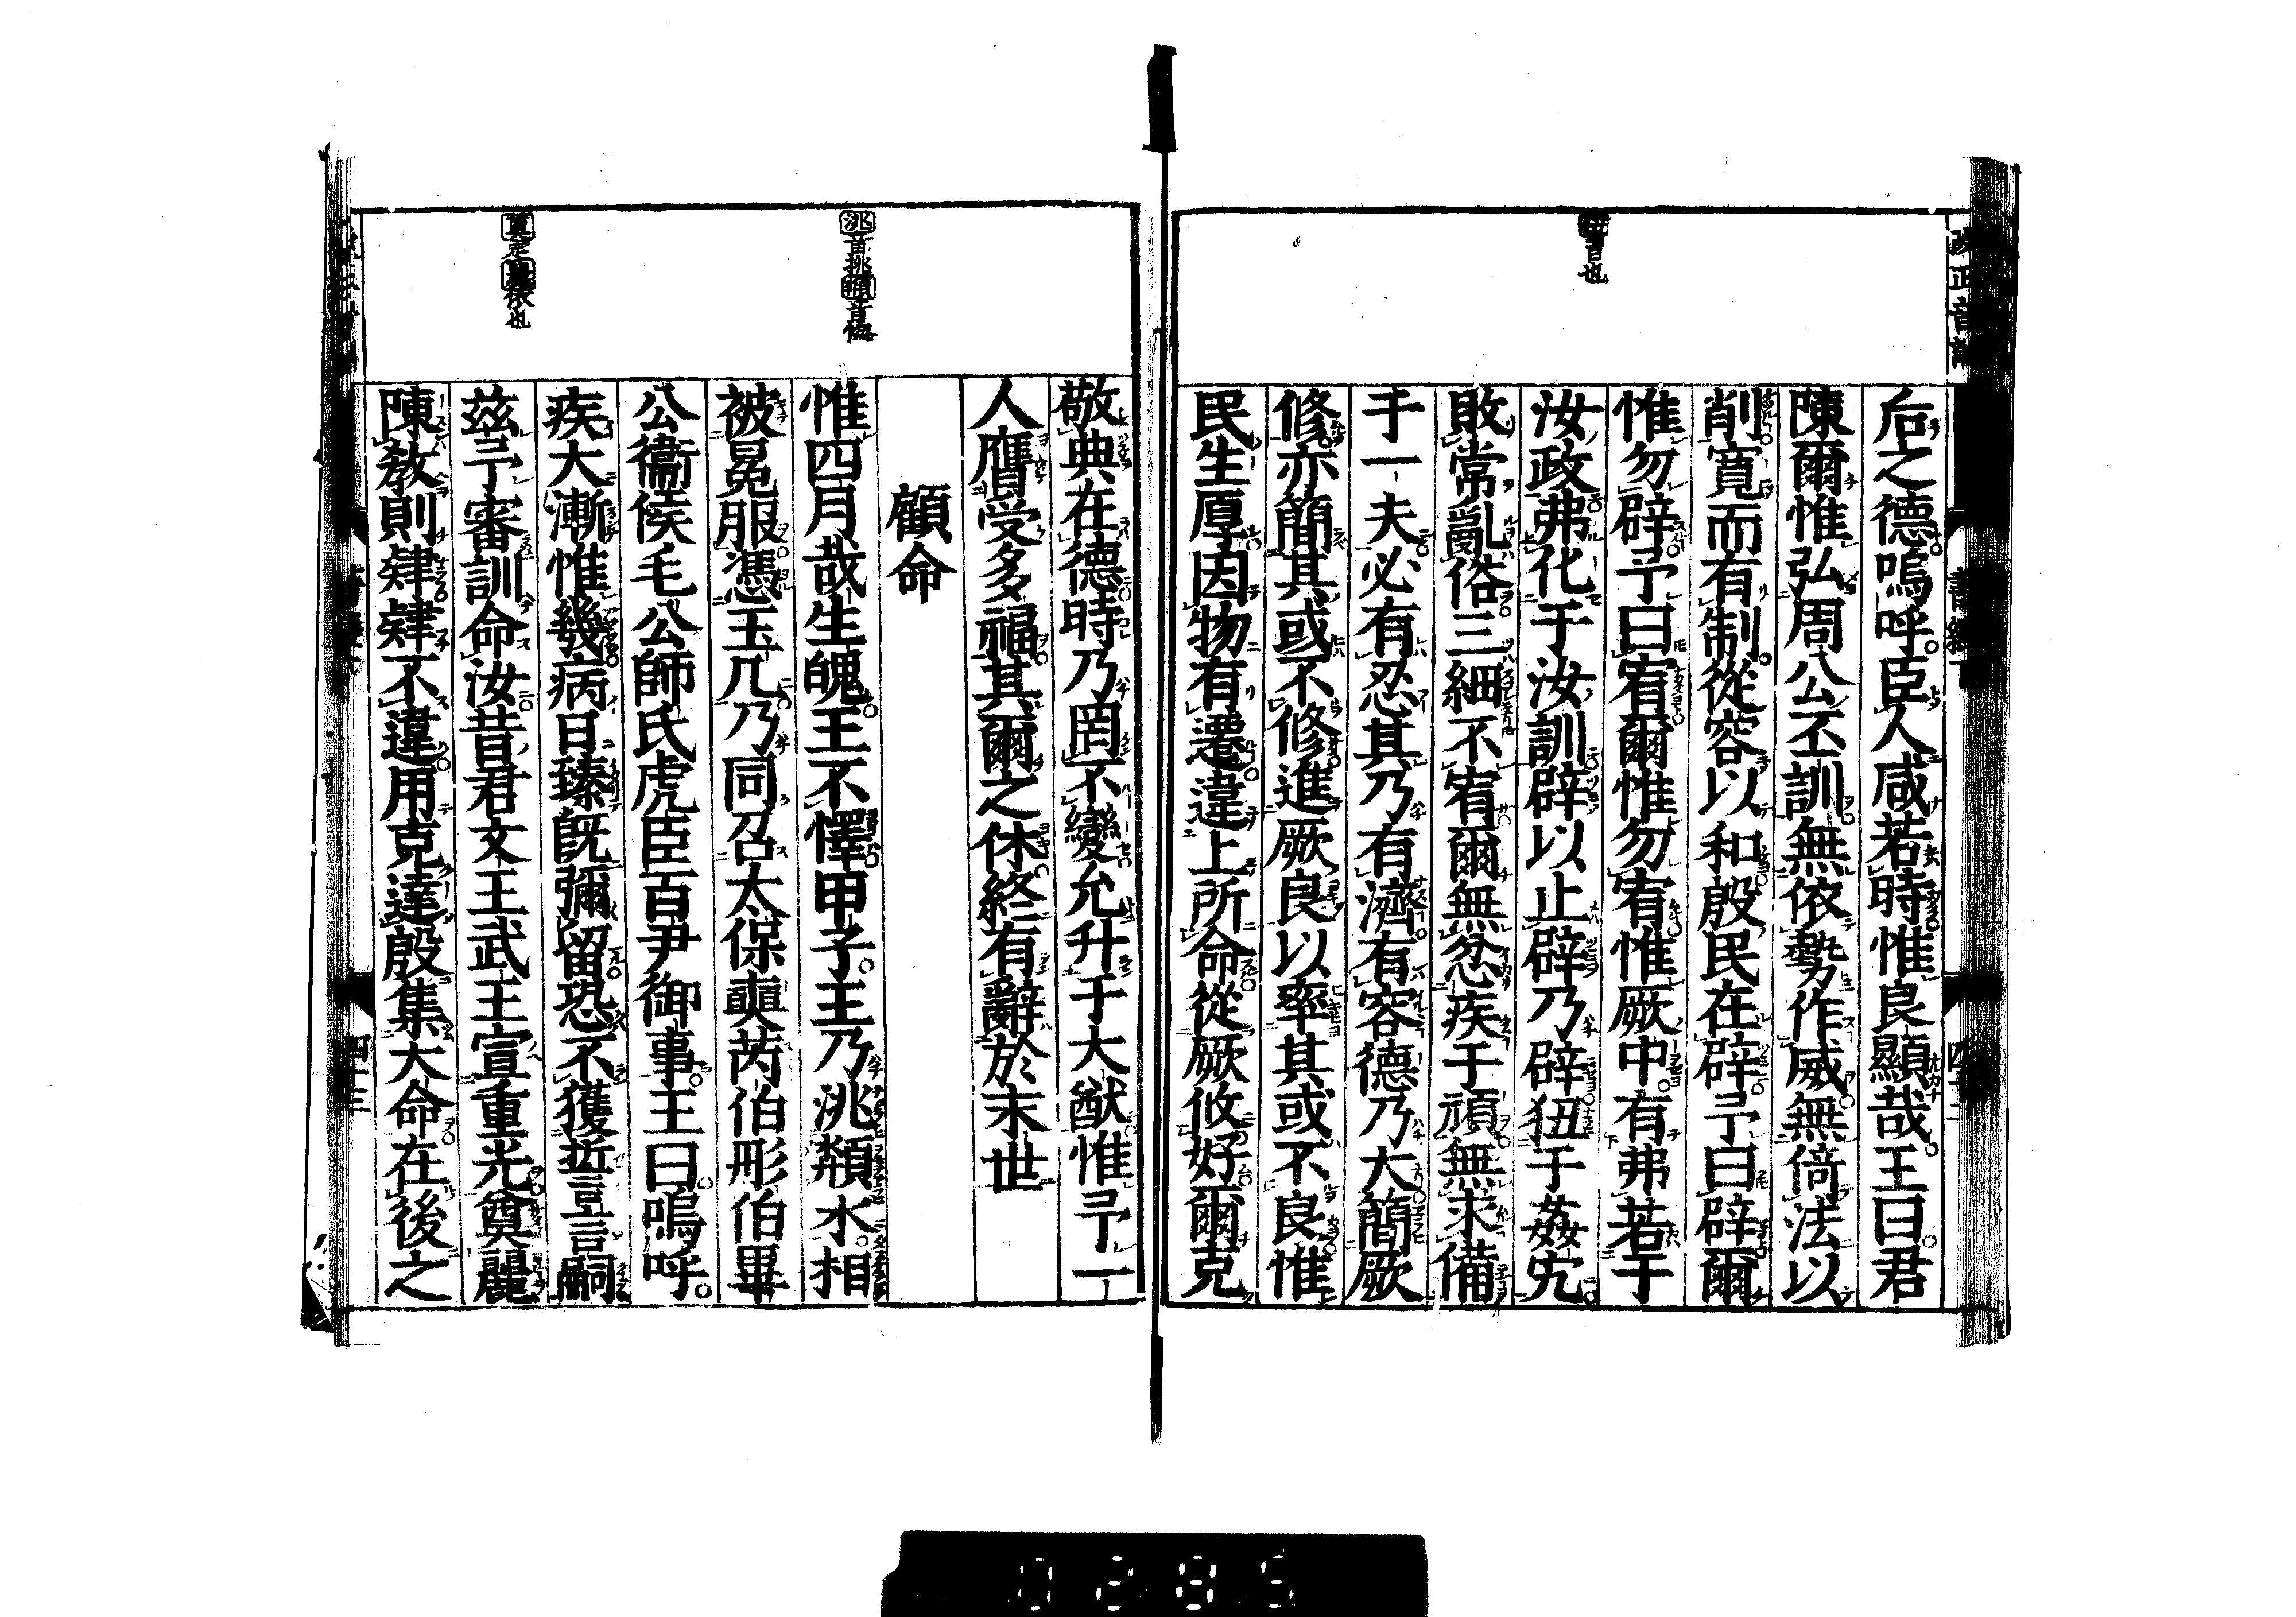 后之德嗚呼。臣人咸若時惟良顯哉。王曰。君
陳爾惟弘周公丕訓無依勢作威無倚法以
削寬而有制。從容以和殷民在辟予曰辟爾
惟勿辟予曰宥爾惟勿宥惟厥中。有弗若于
汝政弗化于汝訓辟以止辟乃辟狃于姦宄
敗常亂俗三細不宥爾無忿疾于頑無求備
于一夫必有忍其乃有濟有容德乃大簡厥
修。亦簡其或不修進厥良以率其或不良惟
民生厚因物有遷違上所命從厥攸好爾克
敬典在德時乃罔不變允升于大猷惟予一
人膺受多福其爾之休終有辭於末世
顧命
惟四月哉生魄王不懌甲子。王乃洮頮水。相
被冕服憑玉几乃同召太保奭芮伯彤伯畢
公衞侯毛公師氏虎臣百尹御事。王曰。嗚呼。
疾大漸惟幾病日臻既彌留恐不獲誓言嗣
茲予審訓命汝昔君文王武王宣重光奠麗
陳教則肄肄不違用克達殷集大命在後之
洮音挑頮音悔
奠定麗依也